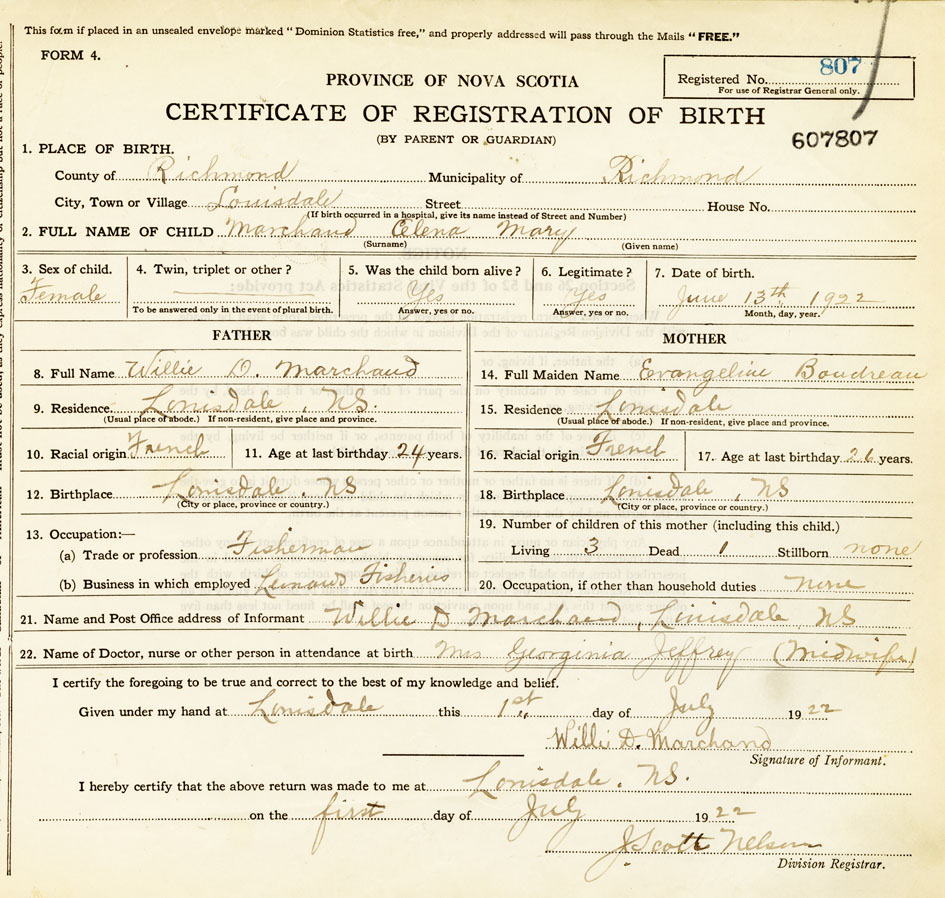 This form if placed in an unsealed envelope marked "Dominion Statistics free," and properly addressed will pass through the Mails "FREE."
FORM 4.
Registered No. 807
For use of Registrar General only.
PROVINCE OF NOVA SCOTIA
CERTIFICATE OF REGISTRATION OF BIRTH
(BY PARENT OR GUARDIAN)
607807
1. PLACE OF BIRTH.
County of Richmond Municipality of Richmond
City, Town or Village Louisdale Street House No.
(If birth occurred in a hospital, give its name instead of Street and Number)
2. FULL NAME OF CHILD Marchand Elena Mary
(Surname) (Given name)
3. Sex of child. 4. Twin, triplet or other? 5. Was the child born alive? 6. Legitimate? 7. Date of birth.
Female Yes Yes June 13th 1922
To be answered only in the event of plural birth. Answer, yes or no. Answer, yes or no. Month, day, year.
FATHER
8. Full Name Willie D. Marchand
9. Residence. Louisdale, NS.
(Usual place of abode.) If non-resident, give place and province.
10. Racial origin French 11. Age at last birthday 24 years.
12. Birthplace Louisdale, NS
(City or place, province or country.)
13. Occupation:—
(a) Trade or profession Fisherman
(b) Business in which employed Leonard Fisheries
MOTHER
14. Full Maiden Name Evangeline Boudreau
15. Residence Louisdale
(Usual place of abode.) If non-resident, give place and province.
16. Racial origin French 17. Age at last birthday 26 years.
18. Birthplace Louisdale, NS
(City or place, province or country.)
19. Number of children of this mother (including this child.)
Living 3 Dead 1 Stillborn none
20. Occupation, if other than household duties None
21. Name and Post Office address of Informant Willie D Marchand, Louisdale, NS
22. Name of Doctor, nurse or other person in attendance at birth Mrs Georginia Jeffrey (Midwife)
I certify the foregoing to be true and correct to the best of my knowledge and belief.
Given under my hand at Louisdale this 1st day of July 1922
Willie D. Marchand
Signature of Informant.
I hereby certify that the above return was made to me at Louisdale, NS.
on the first day of July 1922
J. Scott Nelson
Division Registrar.